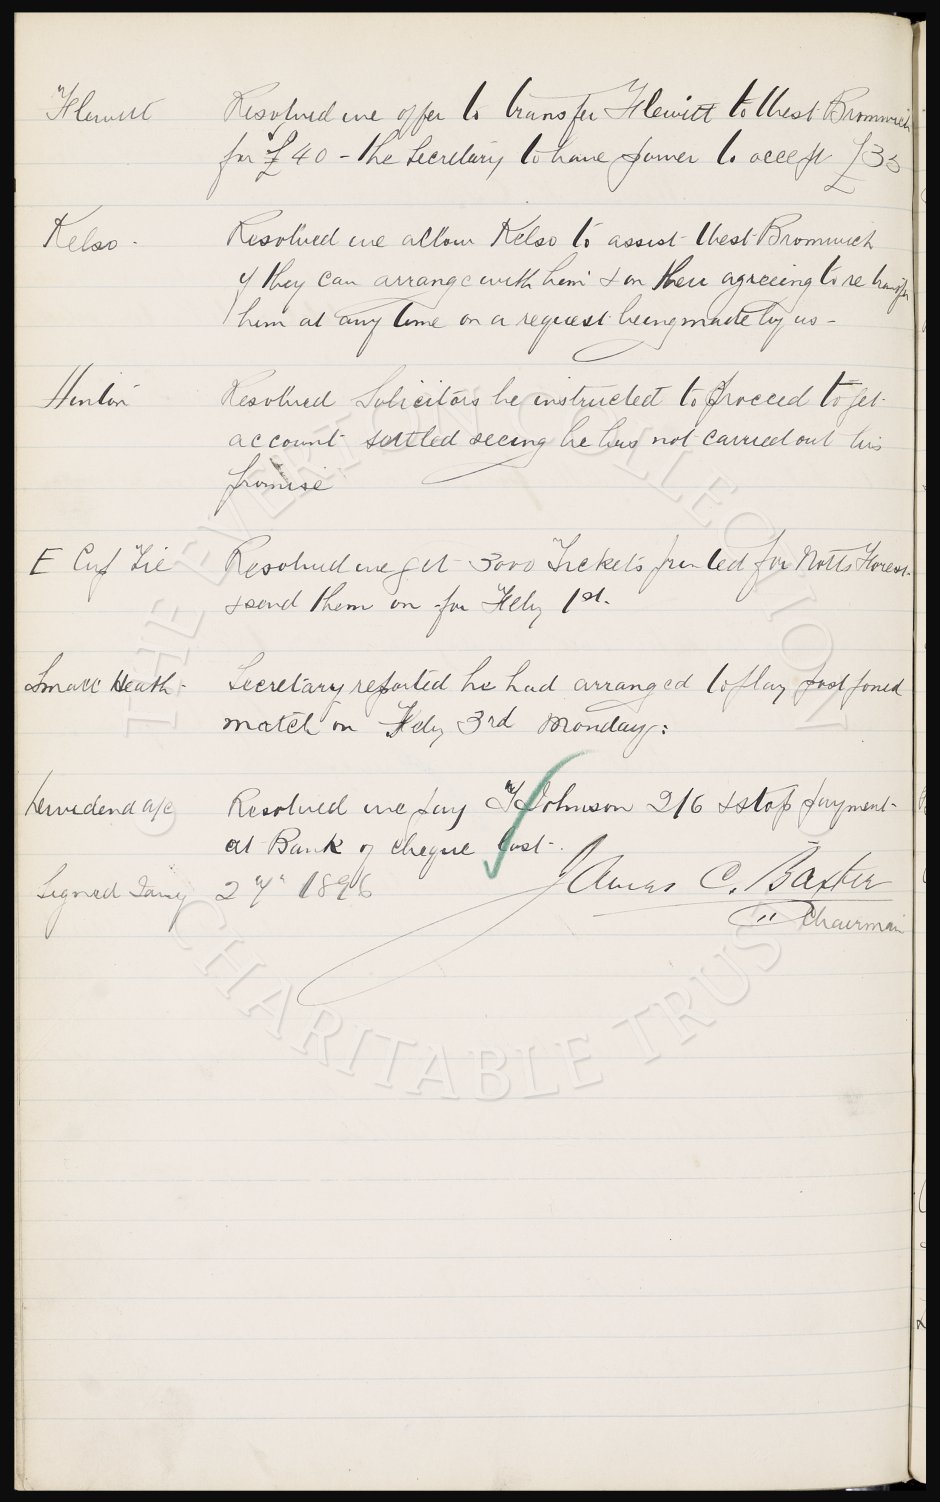 Flewitt Resolved we offer to transfer Flewitt to West Bromwich
for £40 - the Secretary to have power to accept £35
Kelso - Resolved we allow Kelso to assist West Bromwich
if they can arrange with him & on their agreeing to re transfer
him at any time on a request being made by us -
Hinton Resolved Solicitors be instructed to proceed to get
account settled seeing he has not carried out his
promise
E Cup Tie Resolved we get 3000 Tickets printed for Notts Forest
& send them on for Feby 1st.
Small Heath - Secretary reported he had arranged to play postponed
match on Feby 3rd Monday:
Dividend a/c Resolved we pay Johnson 2/6 & stop payment
at Bank of cheque lost.
Signed Jany 27th 1896 James C. Baxter
Chairman
THE EVERTON COLLECTION
CHARITABLE TRUST